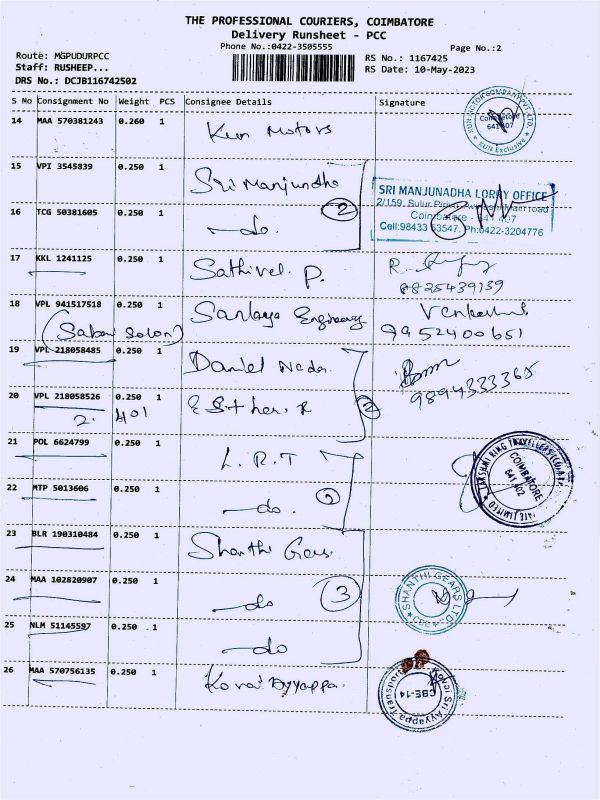 THE PROFESSIONAL COURIERS, COIMBATORE
Delivery Runsheet - PCC
Phone No.:0422-3505555 Page No.:2
Route: MGPUDURPCC RS No.: 1167425
Staff: RUSHEEP... RS Date: 10-May-2023
DRS No.: DCJB116742502
S No Consignment No Weight PCS Consignee Details Signature
14 MAA 570381243 0.260 1 Kun Motors
Coimbatore
641 407
KUN Exclusive
15 VPI 3545839 0.250 1 Sri Manjundha
SRI MANJUNADHA LORRY OFFICE
2/159, Sulur
Coimbatore - 641 407
Cell:98433 63547, Ph:0422-3204776
16 TCG 50381605 0.250 1 -do- 2
17 KKL 1241125 0.250 1 Sathivel. P.
9825439139
18 VPL 941517518 0.250 1 Engineering
9952400651
19 VPL 218058485 0.250 1 Daniel
9894333365
20 VPL 218058526 0.250 1 Esther. R 2
2. 401
21 POL 6624799 0.250 1 L. R. T
LAKSHMI RING TRAVELLERS
COIMBATORE
641 402
22 MTP 5013606 0.250 1 -do-
23 BLR 190310484 0.250 1 Shanthi Gears
24 MAA 102820907 0.250 1 -do 3
SHANTHI GEARS LTD
25 NLM 51145597 0.250 1 -do
26 MAA 570756135 0.250 1 Kovai Ayyappa.
Kovai Sri Ayyappa Transport
CBE-14